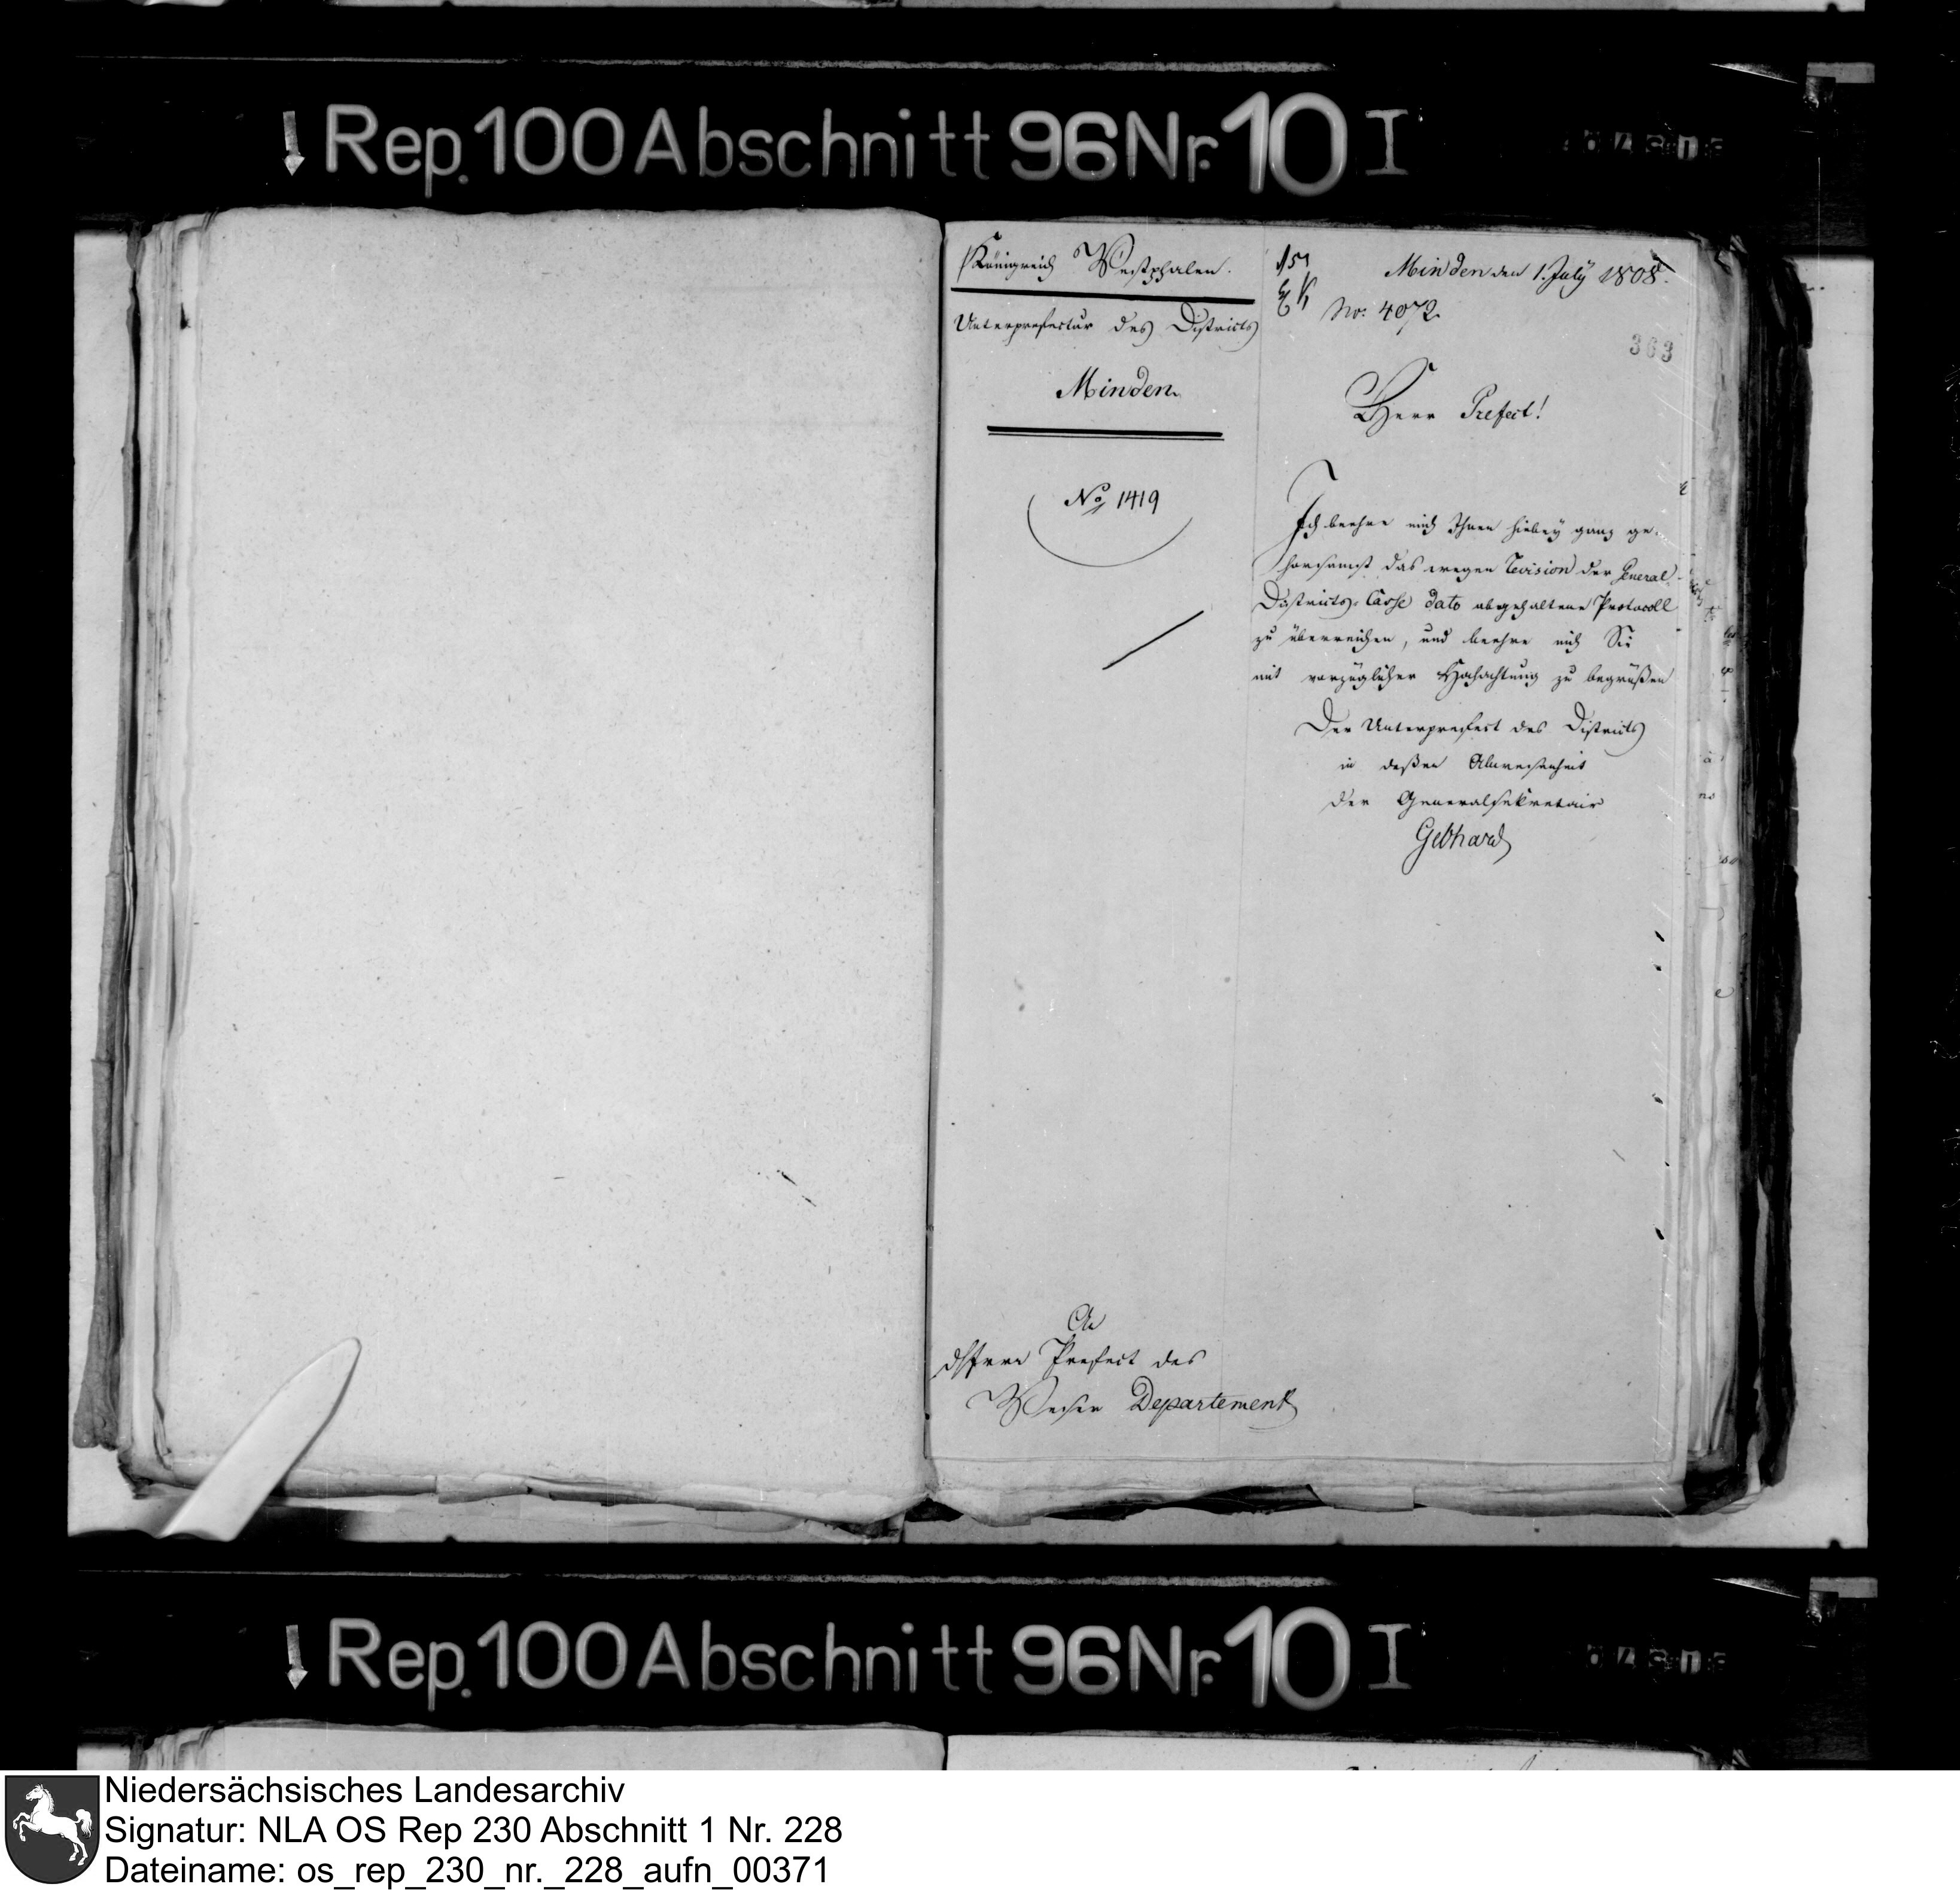 Rep. 100 Abschnitt 96 Nr. 10 I
Königreich Westphalen.
Unterprefectur des Districts
Minden.
No 1419
Minden den 1. July 1808.
No: 4072.
363
Herr Prefect!
Ich beehre mich Ihnen hiebey ganz ge-
horsamst das wegen Revision der General-
Districts-Casse dato abgehaltene Protocoll
zu überreichen, und beehre mich Sie
mit vorzüglicher Hochachtung zu begrüßen
Der Unterprefect des Districts
in deßen Abwesenheit
der Generalsekretair
Gebhard
An
Herrn Prefect des
Weser Departement
Rep. 100 Abschnitt 96 Nr. 10 I
Niedersächsisches Landesarchiv
Signatur: NLA OS Rep 230 Abschnitt 1 Nr. 228
Dateiname: os_rep_230_nr._228_aufn_00371